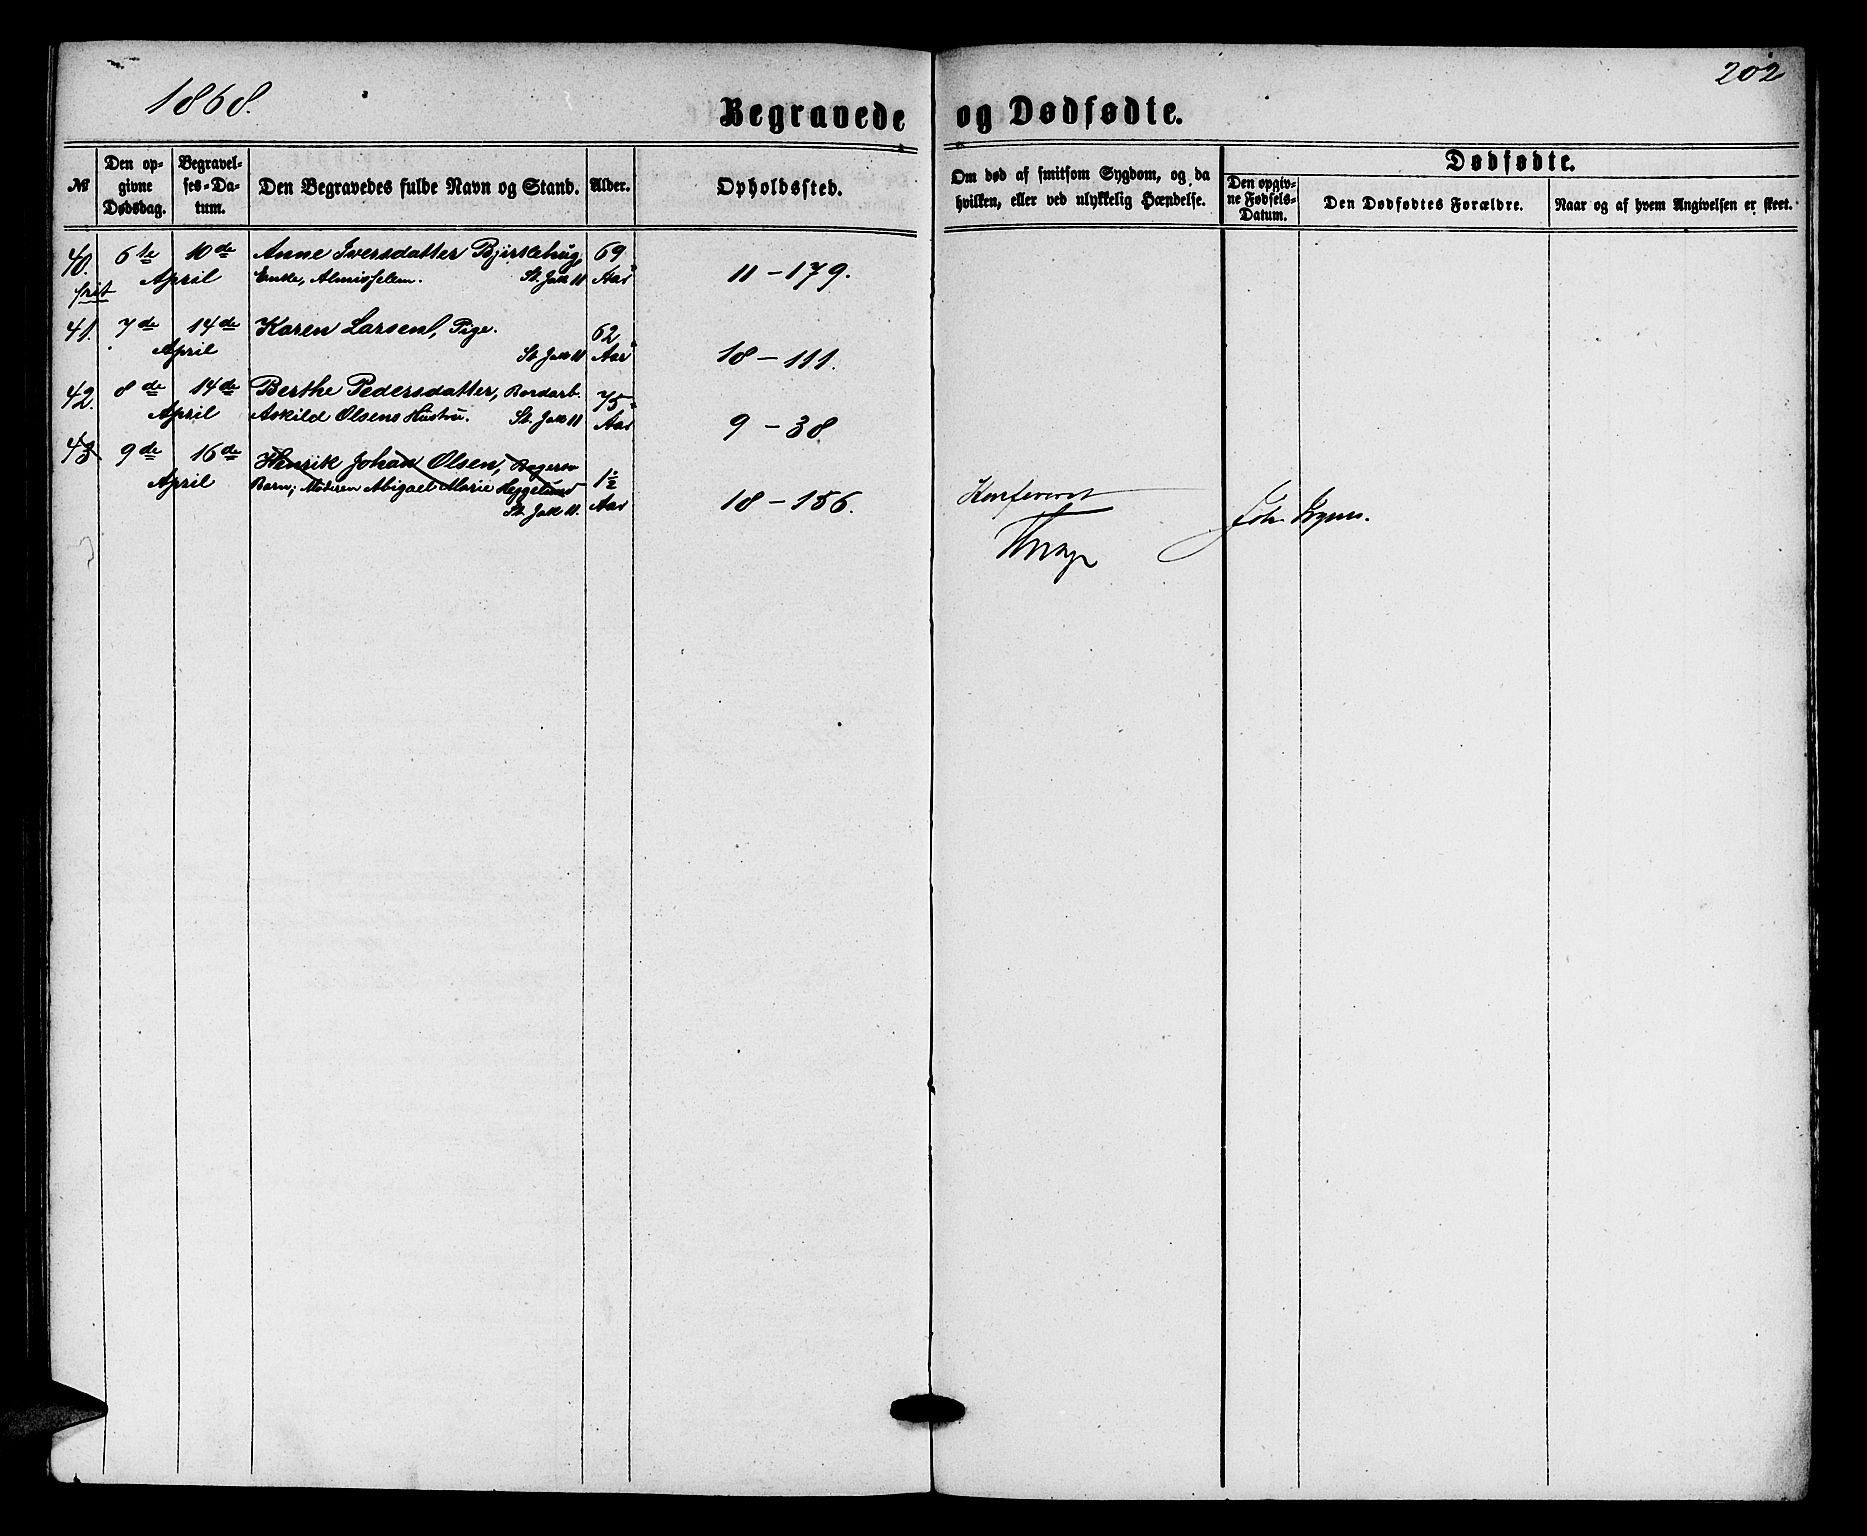 1868.
202
Begravede og Dødfødte.
№
Den op-
givne
Dødsdag.
Begravel-
ses-Da-
tum.
Den Begravedes fulde Navn og Stand.
Alder.
Opholdssted.
Om død af smitsom Sygdom, og da
hvilken, eller ved ulykkelig Hændelse.
Dødfødte.
Den opgiv-
ne Fødsels-
Datum.
Den Dødfødtes Forældre.
Naar og af hvem Angivelsen er skeet.
40. 6te 10de Anne Iversdatter 69
frit April Enke, Almisselem. St. Jak Aar 11-179.
41. 7de 14de Karen Larsen, Pige. 62
April St. Jak Aar 18-111.
42. 8de 14de Berthe Pedersdatter, Bordarb. 75
April Askild Olsens Hustru. St. Jak Aar 9-38
43 9de 16de Henrik Johan Olsen, Bagersv
April Barn; Moderen Abigael Marie Heggelund 1½
St. Jak Aar 18-156.
Konfereret